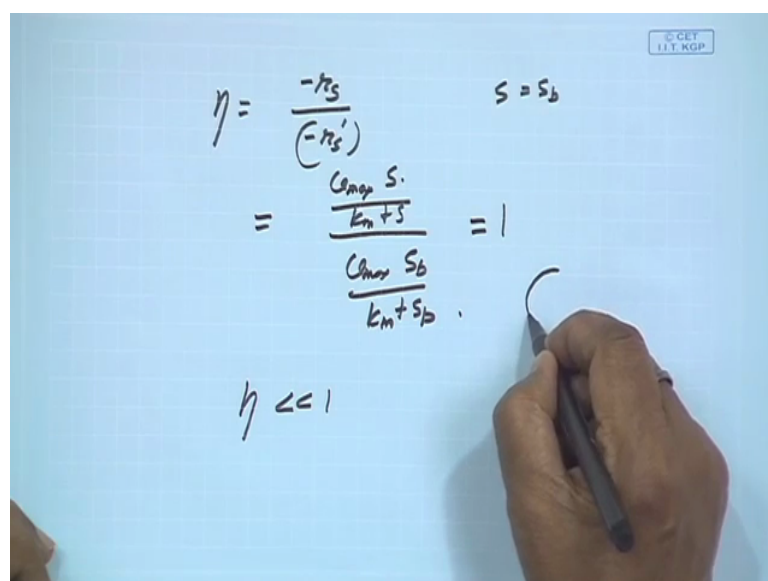 © CET
I.I.T. KGP
η = -rs / (-rs') s = sb
= (vmax s. / km + s) / (vmax sb / km + sb .) = 1
η << 1